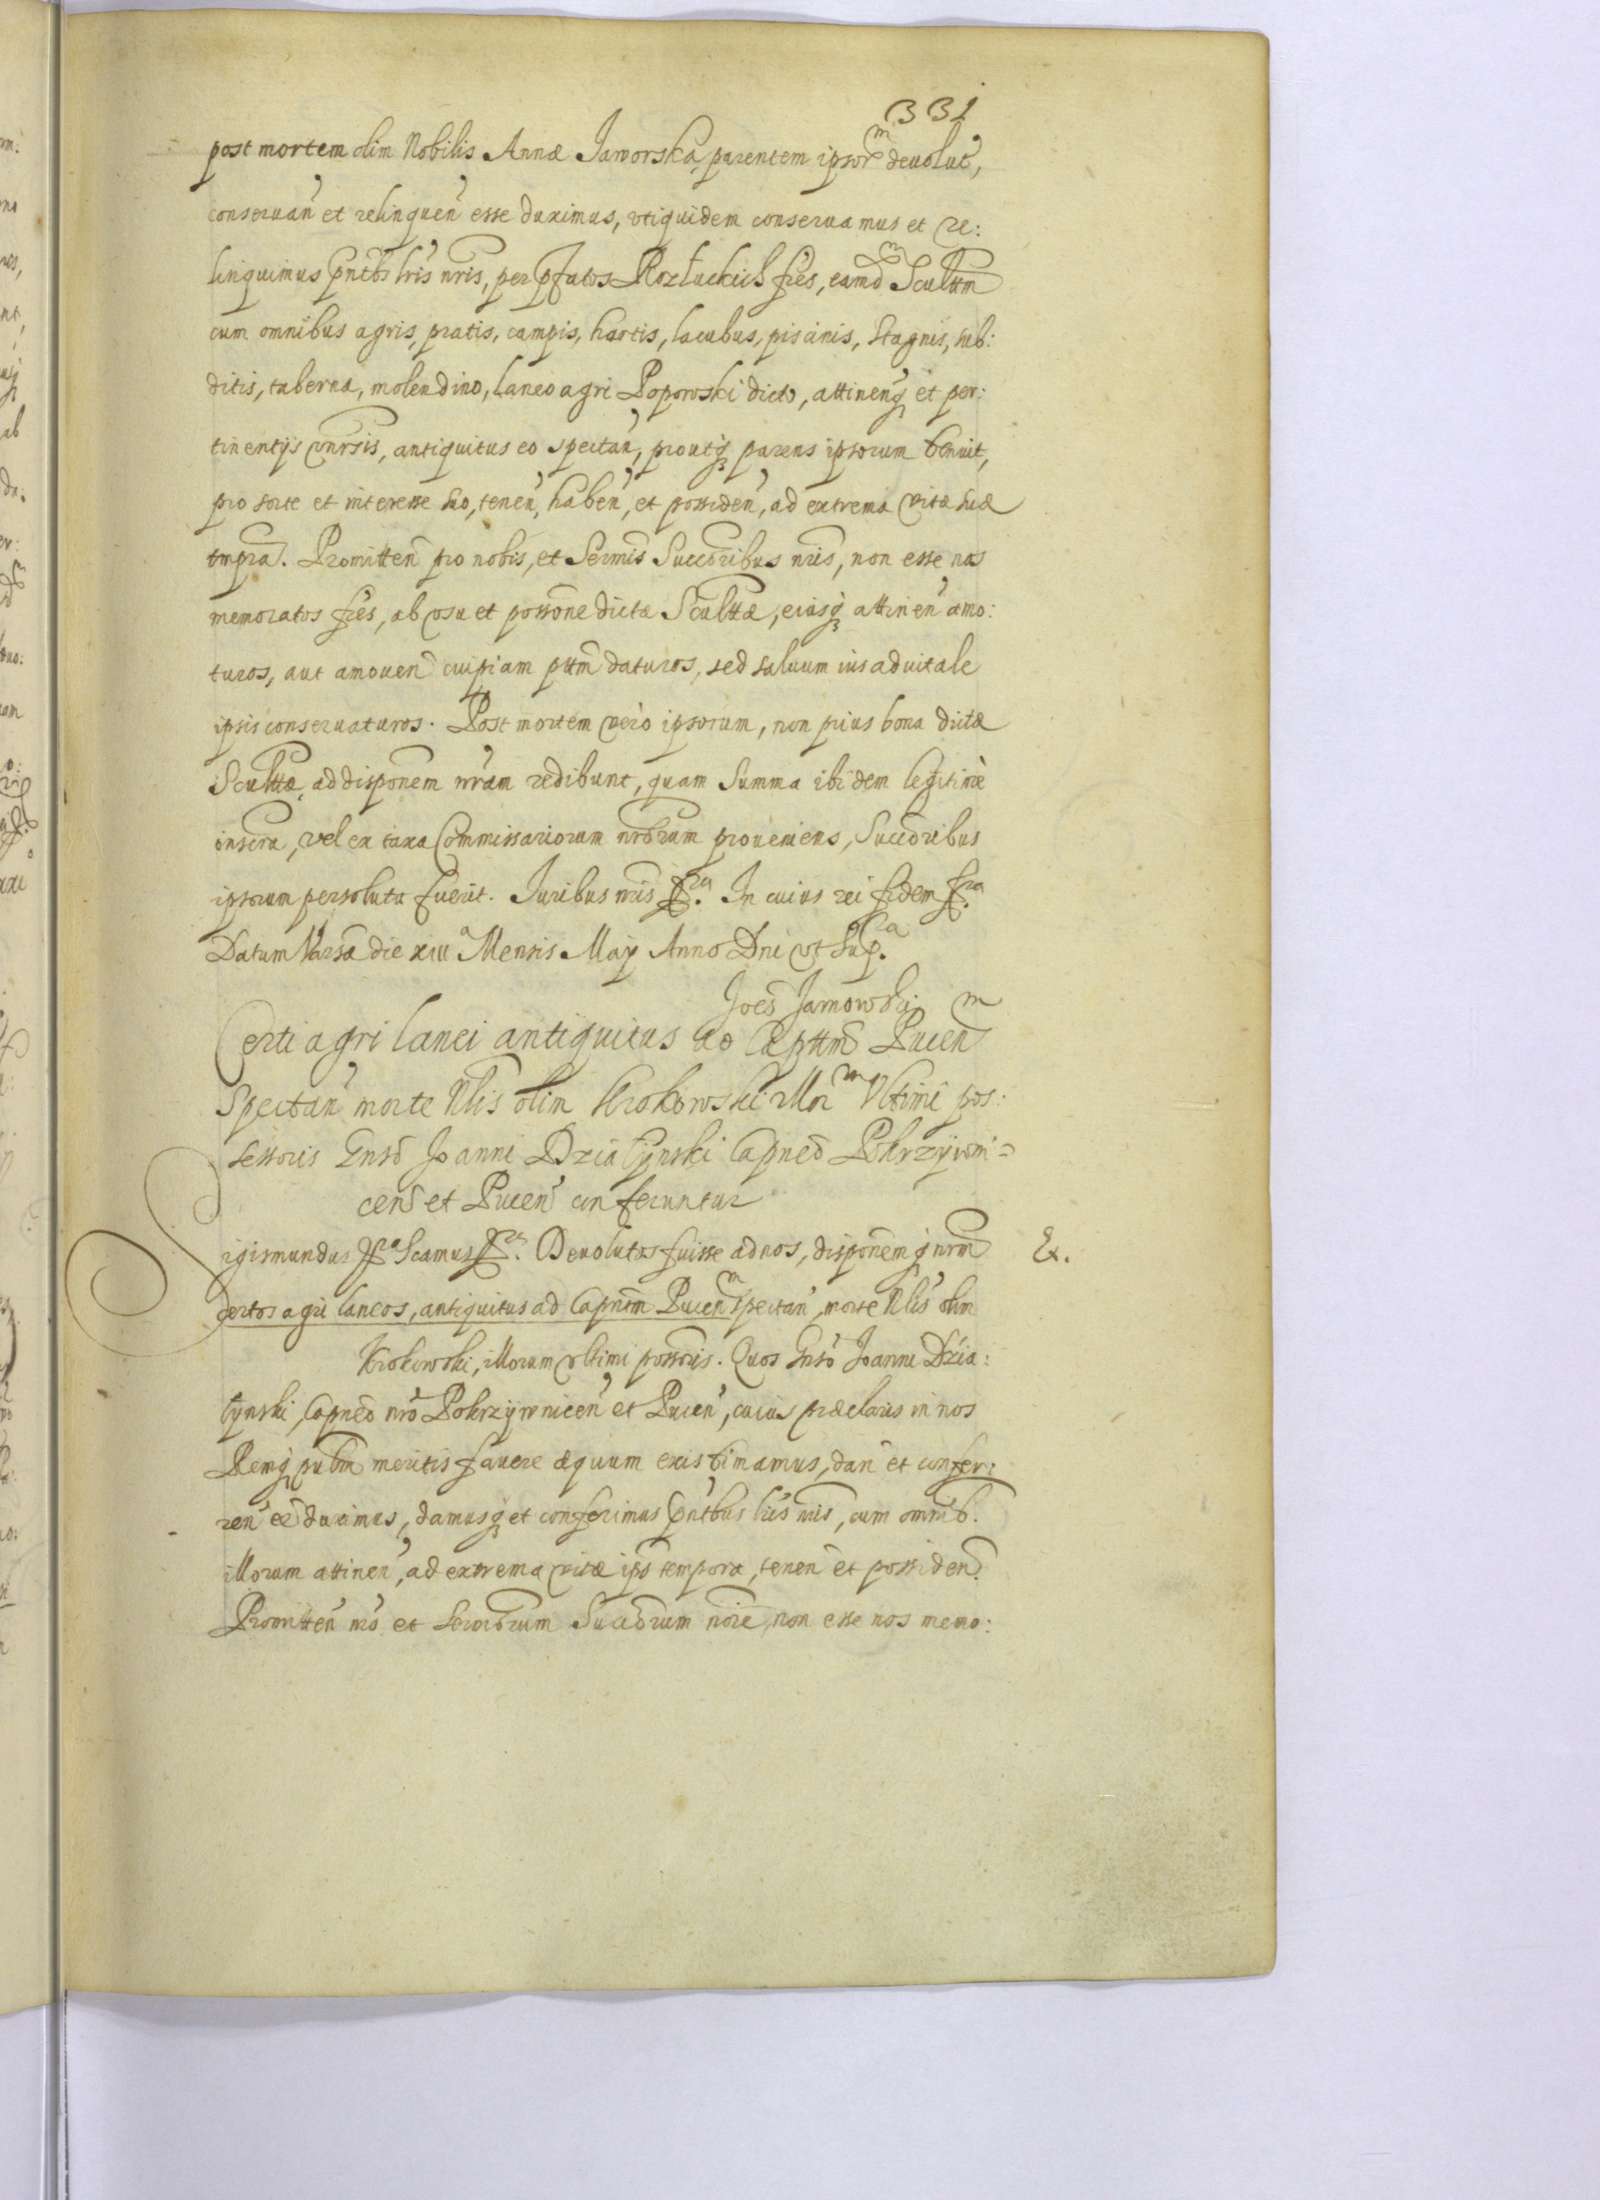 331
post mortem olim Nobilis Annæ Jaworska, parentem ipsor̃m deuolut̃,
conseruañ et relinqueñ esse duximus, vtiquidem conseruamus et re:
linquimus p̃ntb̃s lr̃is nr̃is, per p̃fatos Rozłuckich fr̃es, eamd̃m Scultt̃m
cum omnibus agris, pratis, campis, hortis, lacubus, piscinis, stagnis, sub:
ditis, taberna, molendino, laneo agri Poporoski dicto, attineñq; et per:
tinentijs vnĩrsis, antiquitus eo spectañ, proutq; parens ipsorum tenuit,
pro sorte et interesse suo, teneñ, habeñ, et possideñ, ad extrema vitæ suæ
tmpra. Promitteñ pro nobis, et Serm̃is Succõribus nr̃is, non esse nos
memoratos fr̃es, ab vsu et possõne dictæ Scultt̃æ, eiusq; attineñ amo:
turos, aut amoueñ cuipiam p̃ttm daturos, sed saluum ius aduitale
ipsis conseruaturos. Post mortem verò ipsorum, non prius bona dictæ
Scultt̃æ, ad dispõnem nr̃am redibunt, quam Summa ibidem legitimè
inscr̃a, vel ex taxa Commissariorum nrõrum proueniens, Succõribus
ipsorum persoluta fuerit. Juribus nr̃is &ra. In cuius rei fidem &ra
Datum Varsæ die xiii a Mensis Maÿ Anno Dñi vt supra.
Joẽs Jarnowski
Certi agri lanei antiquitus ad Capttm̃ Puceñm
Spectañ morte Nlis olim Krokowski illorm Vltimi pos:
sessoris Gnso Joanni Działÿnski Capneo Pokrzÿwni=
ceñ et Puceñ conferuntur
Sigismundus &ra Scamus &ra. Deuolutos fuisse ad nos, dispõnemq; nr̃m
certos agri laneos, antiquitus ad Capnt̃m Puceñm spectañ, morte Nlis olim
Krokowski, illorum vltimi possõris. Quos Gnso Joanni Dzia:
łÿnski, Capneo nr̃o Pokrzÿwniceñ et Puceñ, cuius præclaris in nos
Remq; pub̃m meritis fauere æquum existimamus, dañ et confer:
reñ eẽ duximus, damusq; et conferimus p̃ntbus lr̃is nr̃is, cum omnib.
illorum attineñ, ad extrema vitæ ips̃ tempora, teneñ et possideñ.
Promitteñ nr̃o et Serm̃orum Succõrum nõie, non esse nos memo:
Ex.